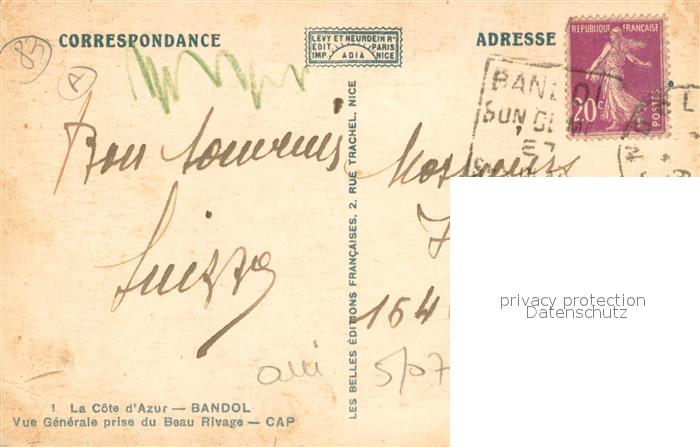 83
A
CORRESPONDANCE
LEVY ET NEURDEIN Rs
EDIT PARIS
IMP ADIA NICE
ADRESSE
REPUBLIQUE FRANÇAISE
20c
POSTES
BANDOL
SON CLIM
Bon souvenir
Messieurs
164
5/07
privacy protection
Datenschutz
LES BELLES ÉDITIONS FRANÇAISES, 2, RUE TRACHEL, NICE
1 La Côte d'Azur — BANDOL
Vue Générale prise du Beau Rivage — CAP